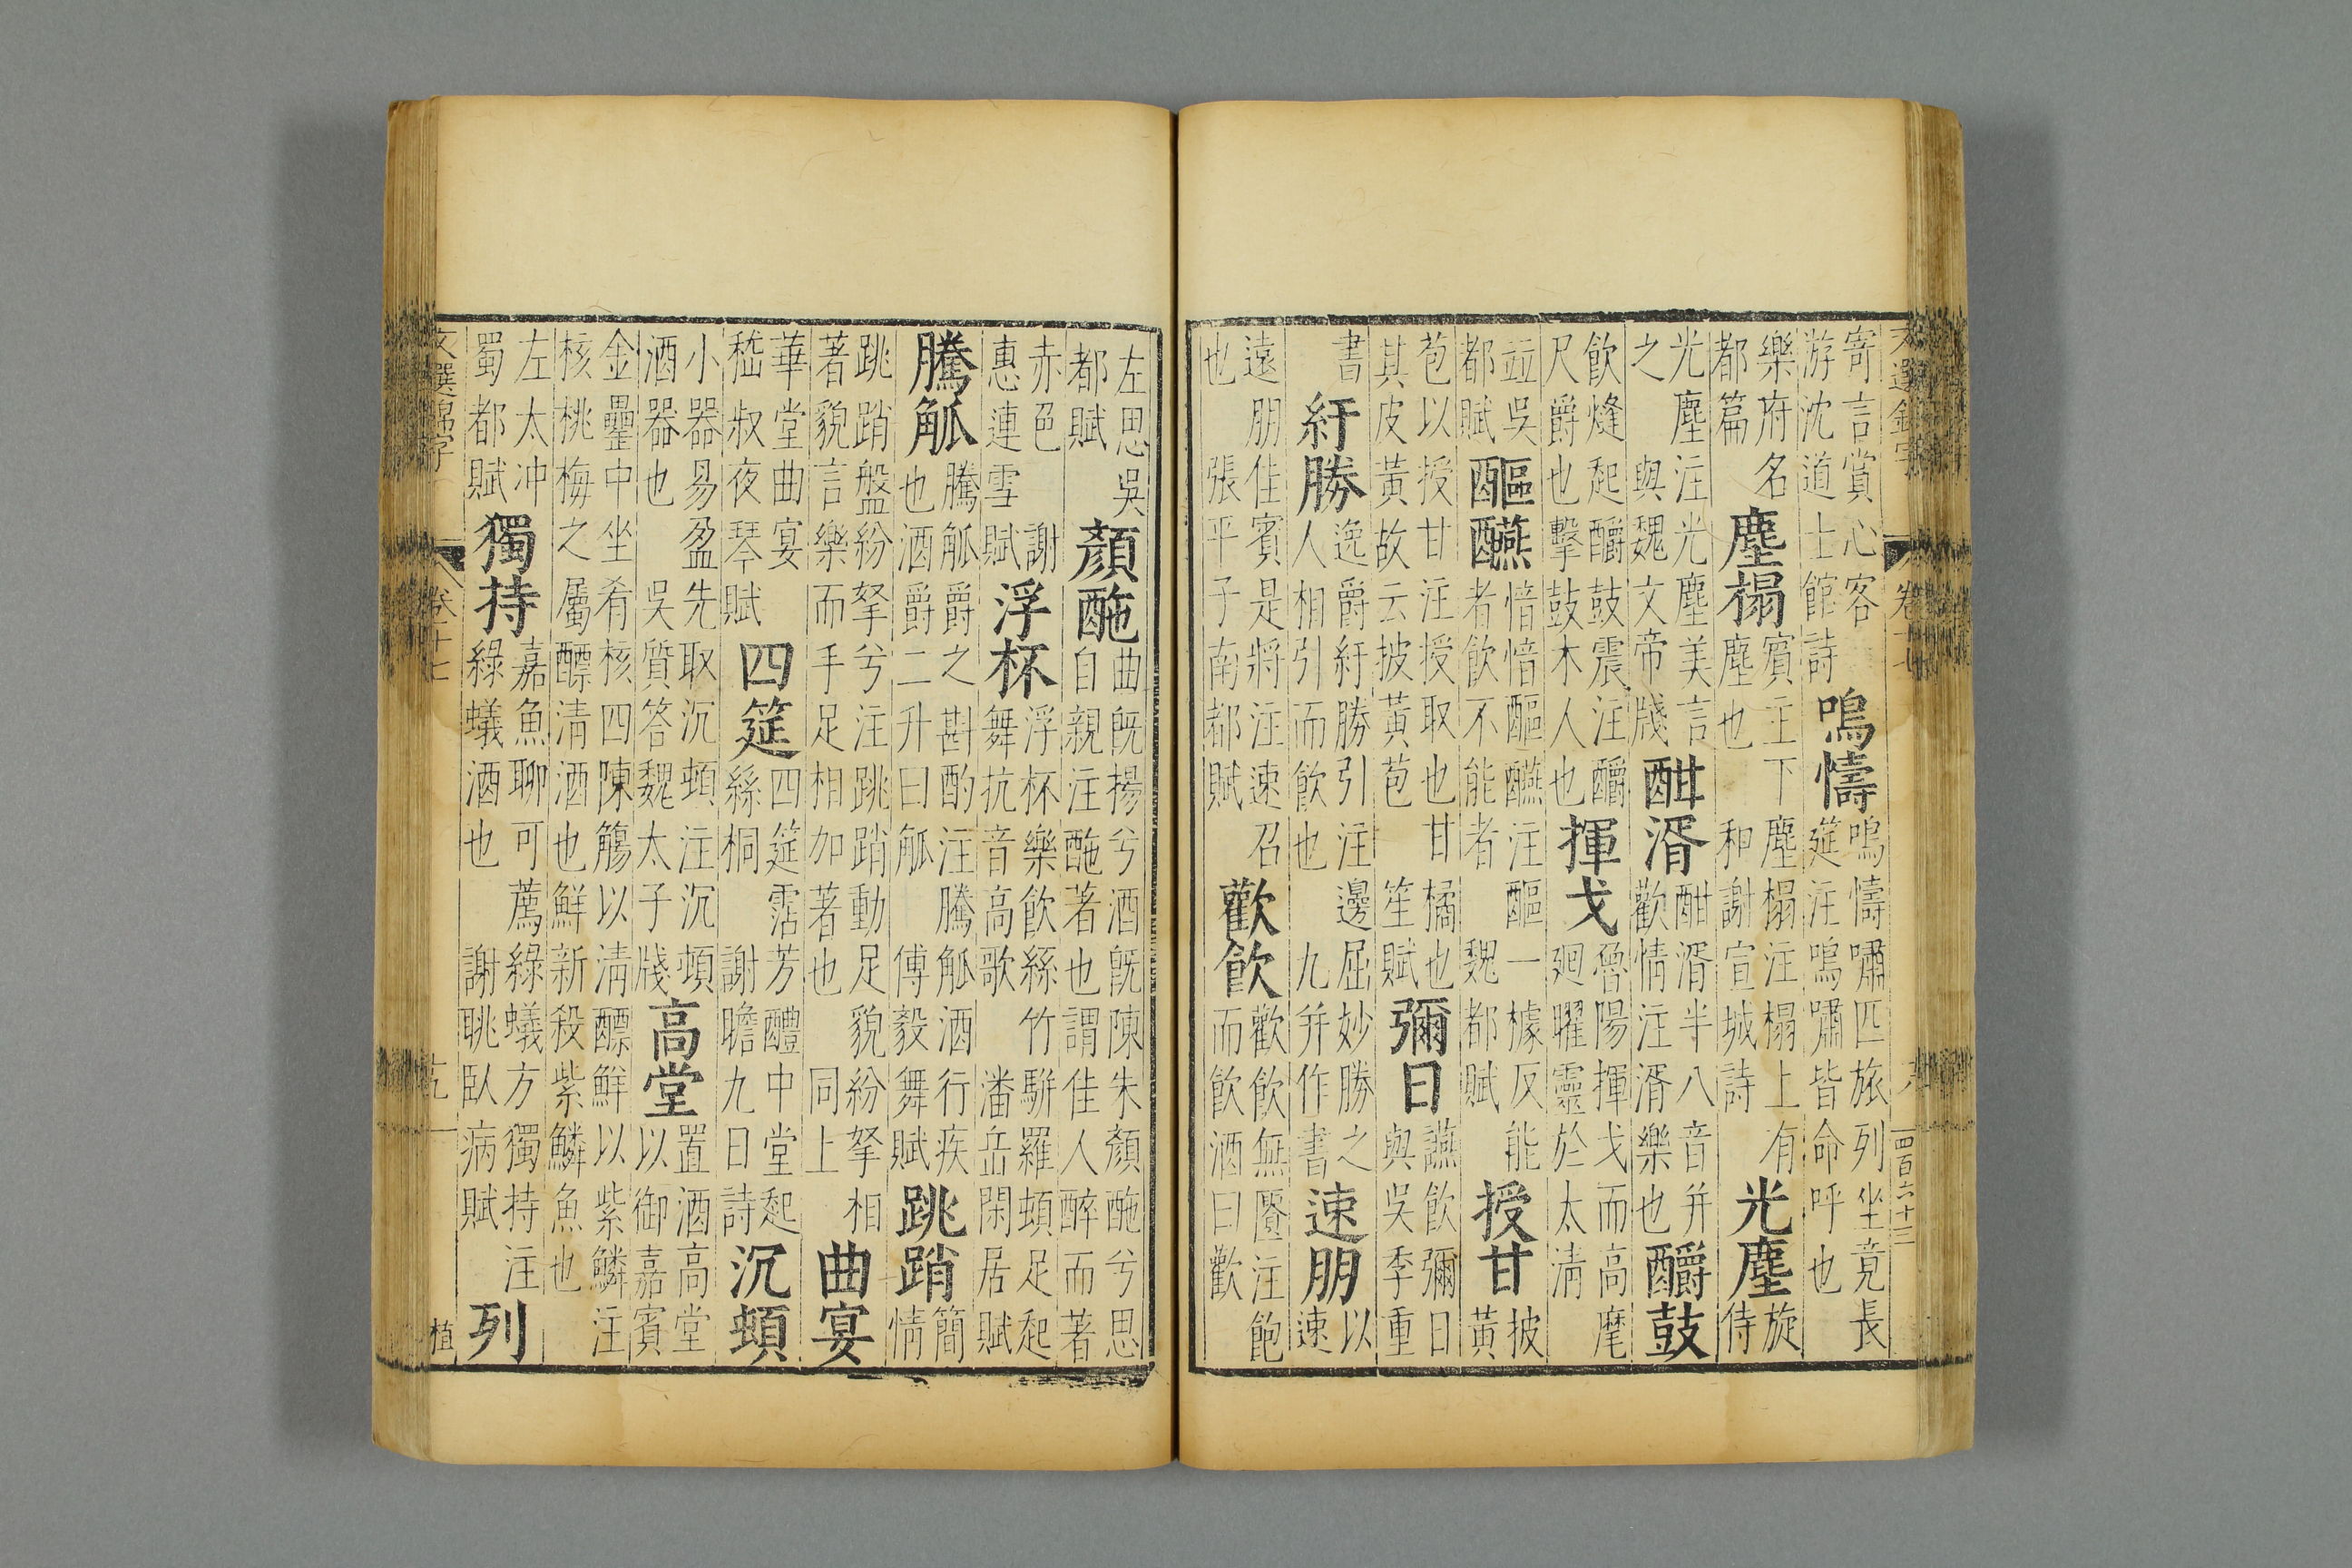 文選錦字 卷十七 四百六十三
寄言賞心客
游沈道士館詩
嗚儔
嗚儔嘯匹旅列坐竟長
筵注嗚嘯皆命呼也
樂府名
都篇
塵榻
賓主下塵榻注榻上有
塵也 和謝宣城詩
光塵
旋
侍
光塵注光塵美言
之 與魏文帝牋
酣湑
酣湑半八音并
歡情注湑樂也
釂鼓
飲烽起釂鼓震注釂
尺爵也擊鼓木人也
揮戈
魯陽揮戈而高麾
廻曜靈於太清
竝吳
都賦
醧醼
愔愔醧醼注醧一據反能
者飲不能者 魏都賦
授甘
披
黃
苞以授甘注授取也甘橘也
其皮黃故云披黃苞 笙賦
彌日
讌飲彌日
與吳季重
書
紆勝
逸爵紆勝引注邊屈妙勝之
人相引而飲也 九并作書
速朋
以
速
遠朋佳賓是將注速召
也 張平子南都賦
歡飲
歡飲無饜注飽
而飲酒曰歡
左思吳
都賦
顏酏
曲既揚兮酒既陳朱顏酏兮思
自親注酏著也謂佳人醉而著
赤色 謝
惠連雪賦
浮杯
浮杯樂飲絲竹駢羅頓足起
舞抗音高歌 潘岳閑居賦
騰觚
騰觚爵之斟酌注騰觚酒行疾
也酒爵二升曰觚 傅毅舞賦
跳踃
簡
情
跳踃盤紛挐兮注跳踃動足貌紛挐相
著貌言樂而手足相加著也 同上
曲宴
華堂曲宴
嵇叔夜琴賦
四筵
四筵霑芳醴中堂起
絲桐 謝瞻九日詩
沉頓
小器易盈先取沉頓注沉頓
酒器也 吳質答魏太子牋
高堂
置酒高堂
以御嘉賓
金罍中坐肴核四陳觴以清醥鮮以紫鱗注
核桃梅之屬醥清酒也鮮新殺紫鱗魚也
左太冲
蜀都賦
獨持
嘉魚聊可薦綠蟻方獨持注
綠蟻酒也 謝朓臥病賦
列
文選錦字 卷十七 十九 植